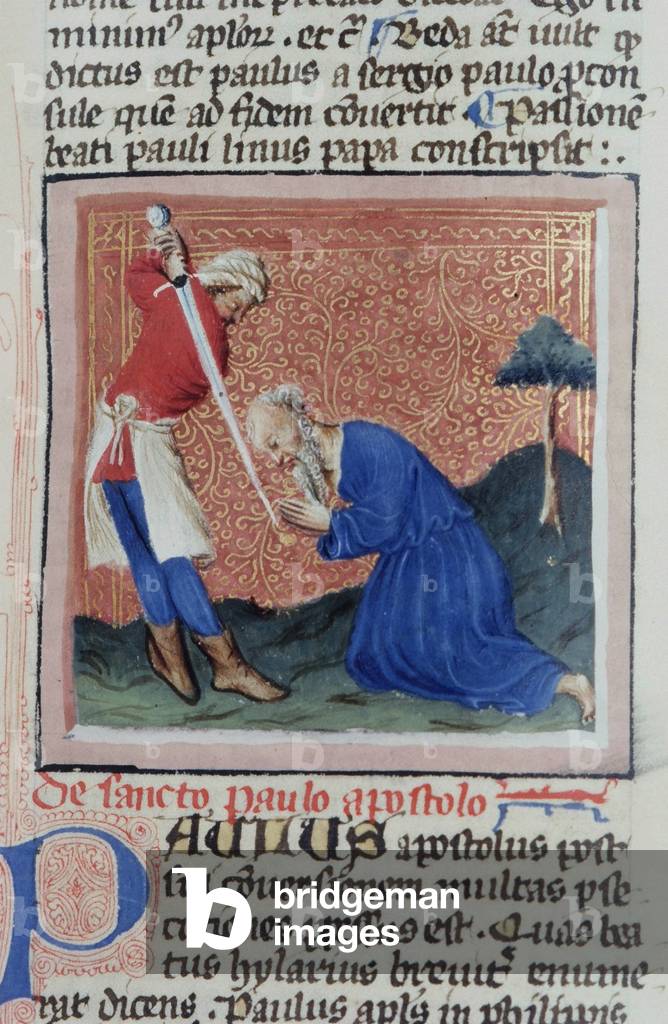 minimus aplorꝝ . et c̄ . Beda at̄ uult ꝙ
dictus est paulus a sergio paulo ꝓcon
sule quē ad fidem cōuertit . Passionē
beati pauli linus papa conscripsit :.
De sancto paulo apostolo
PAULUS apostolus post
multas ꝑse
est . Quas bea
tus hylarius breuit᷒ enume
rat dicens . Paulus apl̄s in philippis
bridgeman
images